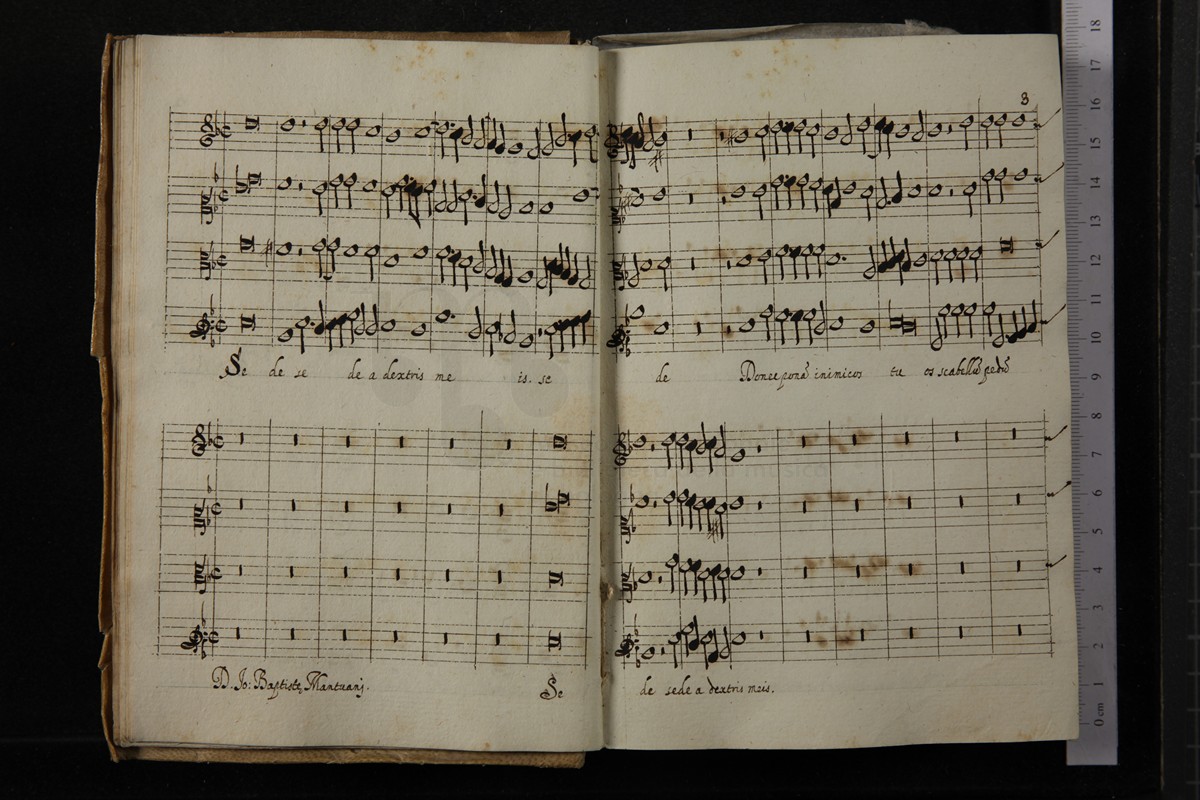 3
Se de se de a dextris me is. se
de Donec ponā inimicos tu os scabellū pedū
D. Jo: Baptiste Mantuani.
Se
de sede a dextris meis.
0 cm 1 2 3 4 5 6 7 8 9 10 11 12 13 14 15 16 17 18